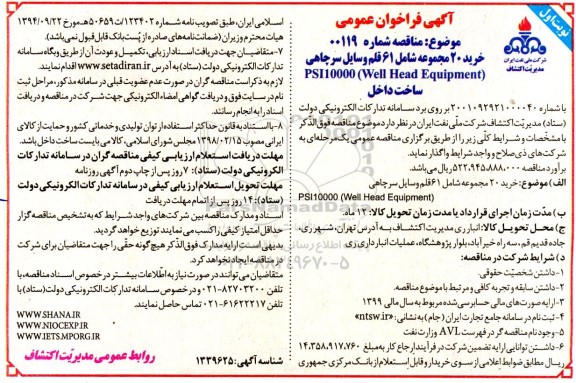 نوبت اول
آگهی فراخوان عمومی
شرکت ملی نفت ایران
مدیریت اکتشاف
موضوع: مناقصه شماره ۰۰۱۱۹
خرید ۲۰ مجموعه شامل ۶۱ قلم وسایل سرچاهی
PSI10000 (Well Head Equipment)
ساخت داخل
با شماره ۲۰۰۱۰۹۲۹۲۱۰۰۰۰۴۰ بر روی برد سامانه تدارکات الکترونیکی دولت
(ستاد) مدیریت اکتشاف شرکت ملّی نفت ایران در نظر دارد موضوع مناقصه فوق الذکر
با مشخصات و شرایط کلّی زیر را از طریق برگزاری مناقصه عمومی یک مرحله‌ای به
شرکت‌های ذی‌صلاح و واجد شرایط واگذار نماید.
برآورد مناقصه: ۵۲۲.۹۴۵.۸۸۸.۰۰۰ ریال می‌باشد.
الف) موضوع: خرید ۲۰ مجموعه شامل ۶۱ قلم وسایل سرچاهی
PSI10000 (Well Head Equipment)
ب) مدّت زمان اجرای قرارداد یا مدت زمان تحویل کالا: ۱۲ ماه.
ج) محل تحویل کالا: انبار ری مدیریت اکتشاف به آدرس تهران، شهرری،
جاده قدیم قم، سه راه خیر آباد، بلوار پژوهشگاه، عملیات انبارداری ری
د) شرایط شرکت در مناقصه:
۱-داشتن شخصیّت حقوقی.
۲-داشتن سابقه و تجربه کافی و مرتبط با موضوع مناقصه.
۳-ارایه صورت‌های مالی حسابرسی شده مربوط به سال مالی ۱۳۹۹
۴-ثبت نام در سامانه جامع تجارت ایران (جام) به نشانی: «ntsw.ir»
۵-وجود نام مناقصه گر در فهرست AVL وزارت نفت
۶-داشتن توانایی ارایه تضمین شرکت در فرآیند ارجاع کار به مبلغ ۱۴,۳۵۸,۹۱۷,۷۶۰
ریال مطابق ضوابط اعلامی از سوی خریدار و قابل استعلام از بانک مرکزی جمهوری
اسلامی ایران، طبق تصویب نامه شماره ۱۲۳۴۰۲/ت۵۰۶۵۹هـ مورخ ۱۳۹۴/۰۹/۲۲
هیات محترم وزیران (ضمانت‌نامه‌های صادره از پُست بانک قابل قبول نمی‌باشد).
۷-متقاضیان جهت دریافت اسناد ارزیابی، تکمیل و عودت آن از طریق وبگاه سامانه
تدارکات الکترونیکی دولت (ستاد) به آدرس www.setadiran.ir اقدام نمایند.
لازم به ذکر است مناقصه گران در صورت عدم عضویت قبلی در سامانه مذکور، مراحل ثبت
نام در سایت فوق و دریافت گواهی امضاء الکترونیکی جهت شرکت در مناقصه و دریافت
اسناد را به انجام رسانند.
۸-با استناد به قانون حداکثر استفاده از توان تولیدی و خدماتی کشور و حمایت از کالای
ایرانی مصوب ۱۳۹۸/۰۲/۱۵ مجلس شورای اسلامی، کالا می بایست ساخت داخل باشد.
مهلت دریافت استعلام ارزیابی کیفی مناقصه گران در سامانه تدارکات
الکترونیکی دولت (ستاد): ۷ روز پس از چاپ دوم آگهی روزنامه
مهلت تحویل استعلام ارزیابی کیفی در سامانه تدارکات الکترونیکی دولت
(ستاد): ۱۴ روز پس از اتمام مهلت دریافت
اسناد و مدارک مناقصه بین شرکت‌های واجد شرایط که به تشخیص مناقصه گزار
حداقل امتیاز کیفی را کسب می نمایند توزیع خواهد گردید.
بدیهی است ارایه مدارک فوق الذکر هیچ‌گونه حقّی را جهت متقاضیان برای شرکت
در مناقصه ایجاد نخواهد کرد.
متقاضیان می‌توانند در صورت نیاز به اطلاعات بیشتر در خصوص اسناد مناقصه، با
تلفن ۸۲۷۰۳۲۰۰-۰۲۱ و در خصوص سامانه تدارکات الکترونیکی دولت (ستاد) با
تلفن ۶۱۶۲۲۲۱۷-۰۲۱ تماس حاصل نمایند.
WWW.SHANA.IR
WWW.NIOCEXP.IR
WWW.IETS.MPORG.IR
شناسه آگهی: ۱۳۳۹۶۲۵
روابط عمومی مدیریّت اکتشاف